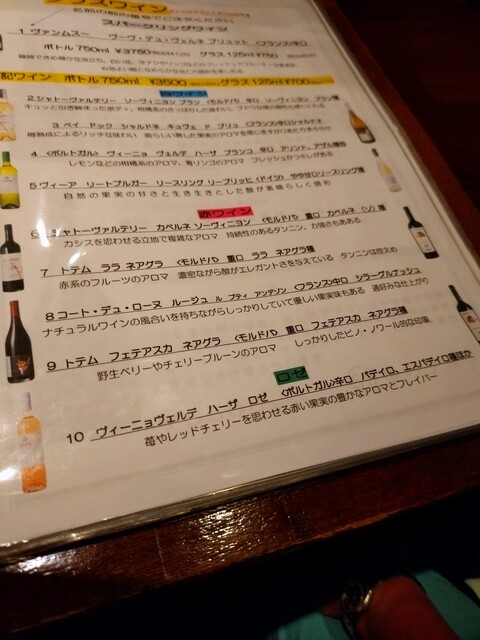 グラスワイン
名前の前の番号でご注文ください
スパークリングワイン
1 ヴァンムスー ヴーヴ・デュ・ヴェルネ ブリュット 〈フランス〉辛口
ボトル 750ml ¥3750 グラス 125ml ¥750
記ワイン ボトル 750ml ¥3500 グラス 125ml ¥700
白ワイン
2 シャトーヴァルテリー ソーヴィニヨン ブラン 〈モルドバ〉 辛口 ソーヴィニヨン ブラン種
3 ペイ ドック シャルドネ キュヴェ ド プリュ 〈フランス〉辛口シャルドネ
4 〈ポルトガル〉 ヴィーニョ ヴェルデ ハーザ ブランコ 辛口 アリント、アザル種他
レモンなどの柑橘系のアロマ、青リンゴのアロマ フレッシュかつキレがある
5 ヴィーア リートブルガー リースリング リープリッヒ〈ドイツ〉 やや甘口リースリング種
自然の果実の甘さと生き生きとした酸が素晴らしく調和
赤ワイン
6 シャトーヴァルテリー カベルネ ソーヴィニヨン 〈モルドバ〉 重口 カベルネ 〈ソ〉 種
カシスを思わせる立地で複雑なアロマ 持続性のあるタンニン、力強さもある
7 トテム ララ ネアグラ 〈モルドバ〉 重口 ララ ネアグラ種
赤系のフルーツのアロマ 濃密ながら酸がエレガントさを与えている タンニンは控えめ
8 コート・デュ・ローヌ ルージュ ル プティ アンデゾン 〈フランス〉中口 シラーグルナッシュ
ナチュラルワインの風合いを持ちながらしっかりしていて優しい果実味もある 通好みな仕上がり
9 トテム フェテアスカ ネアグラ 〈モルドバ〉 重口 フェテアスカ ネアグラ種
野生ベリーやチェリープルーンのアロマ しっかりしたピノ・ノワール的な印象
ロゼ
10 ヴィーニョヴェルデ ハーザ ロゼ 〈ポルトガル〉辛口 パデイロ、エスパデイロ種ほか
苺やレッドチェリーを思わせる赤い果実の豊かなアロマとフレイバー